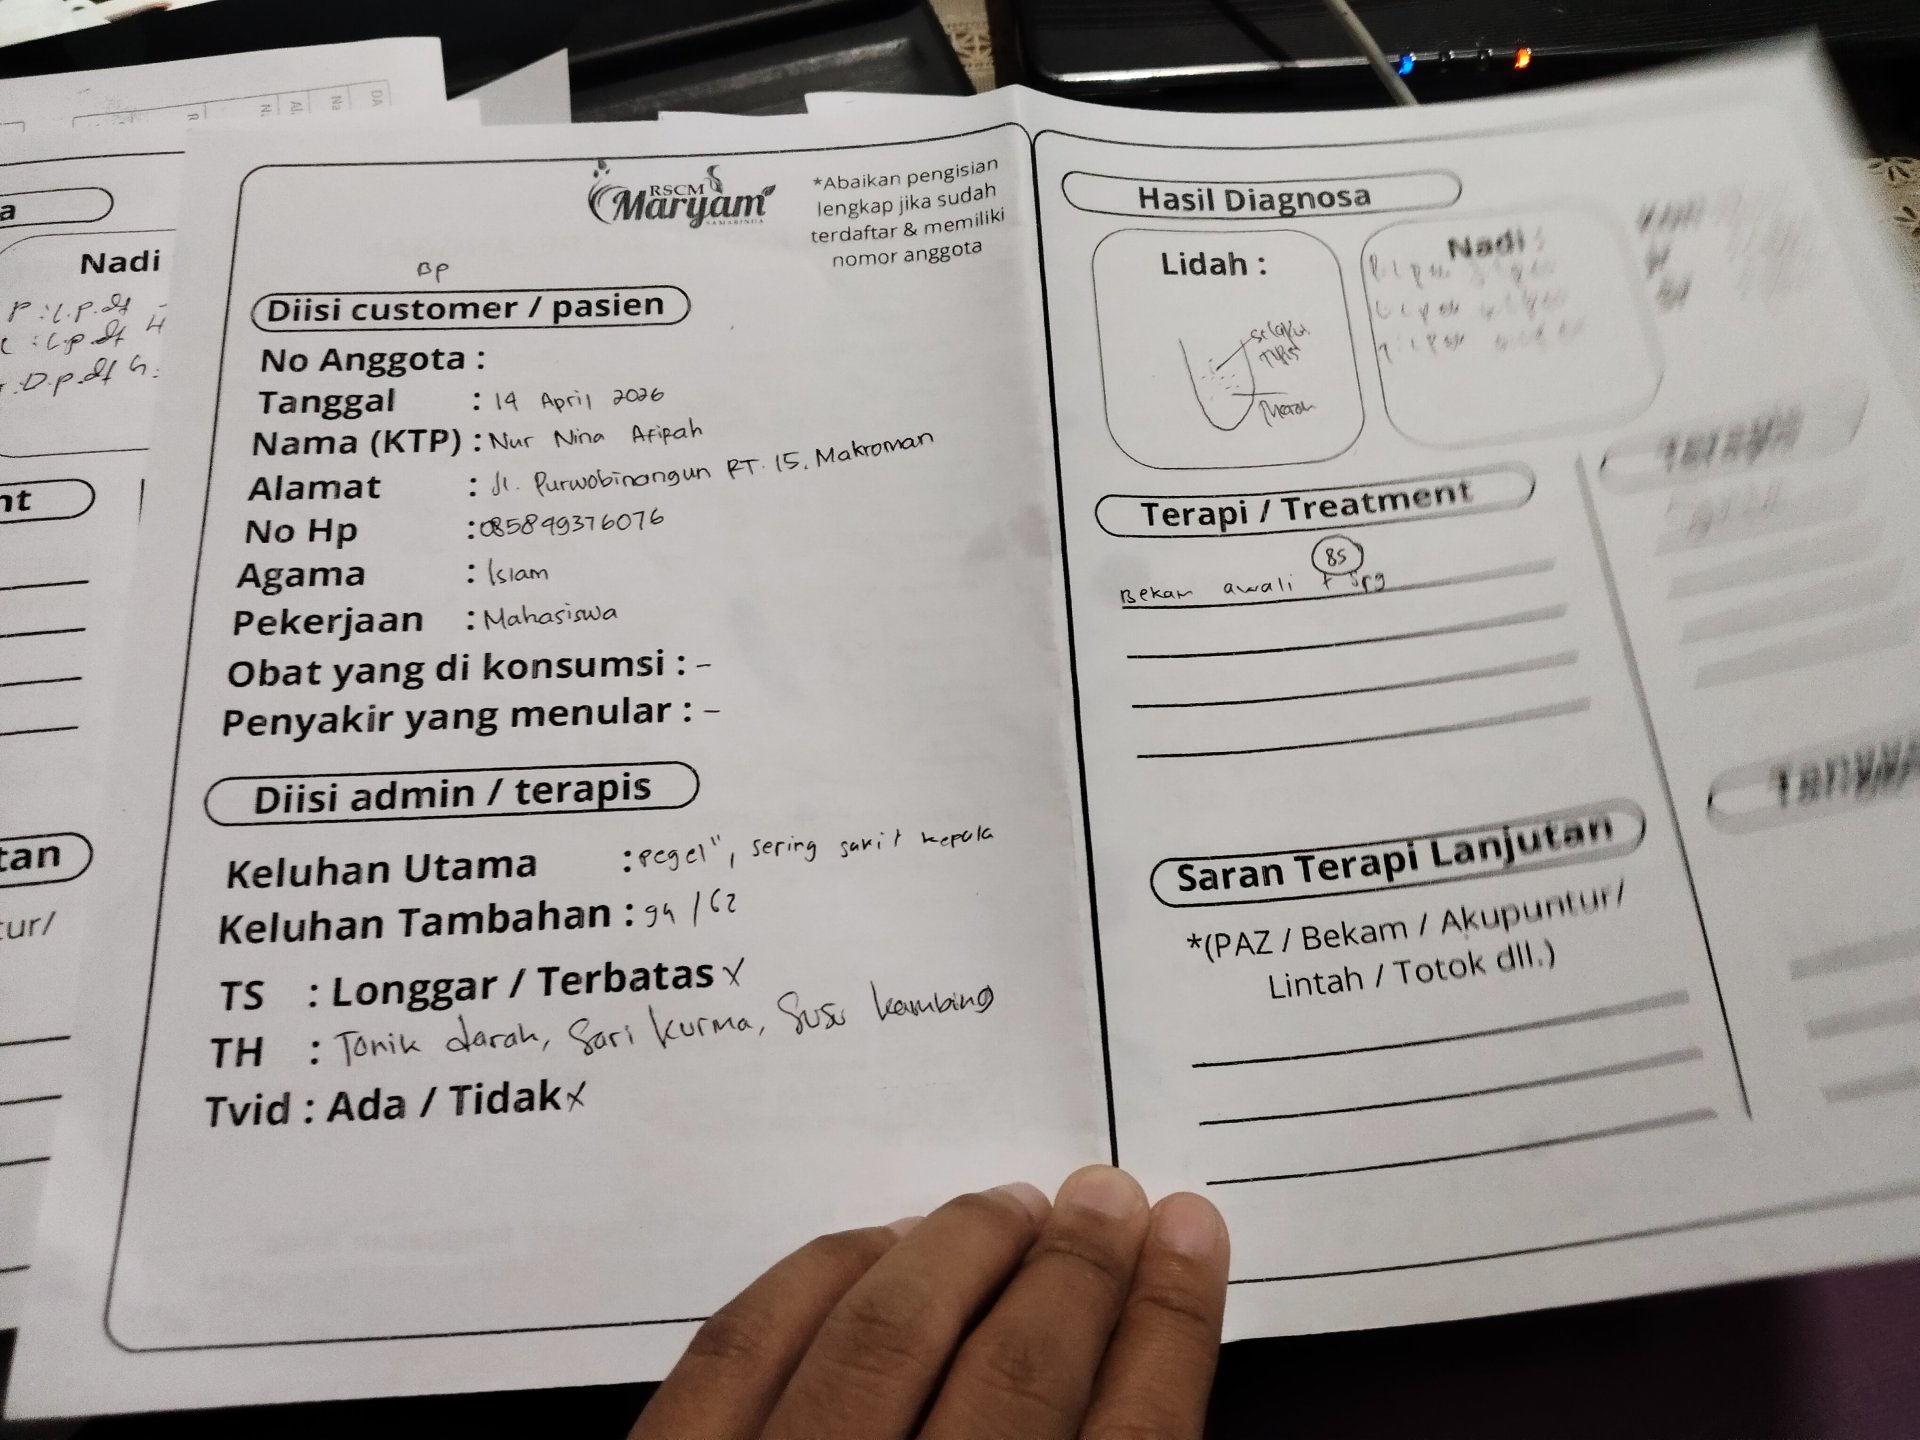 RSCM
Maryam
SAMARINDA
*Abaikan pengisian
lengkap jika sudah
terdaftar & memiliki
nomor anggota
BP
Diisi customer / pasien
No Anggota :
Tanggal : 14 April 2026
Nama (KTP) : Nur Nina Afifah
Alamat : Jl. Purwobinangun RT. 15, Makroman
No Hp : 085849376076
Agama : Islam
Pekerjaan : Mahasiswa
Obat yang di konsumsi : -
Penyakir yang menular : -
Diisi admin / terapis
Keluhan Utama : pegel", sering sakit kepala
Keluhan Tambahan : 94 / 62
TS : Longgar / Terbatas x
TH : Tonik darah, Sari kurma, Susu kambing
Tvid : Ada / Tidak x
Hasil Diagnosa
Lidah :
Selaput
Tipis
Merah
Nadi :
Terapi / Treatment
85
Bekam awali +
Saran Terapi Lanjutan
*(PAZ / Bekam / Akupuntur/
Lintah / Totok dll.)
a
Nadi
nt
tan
tur/